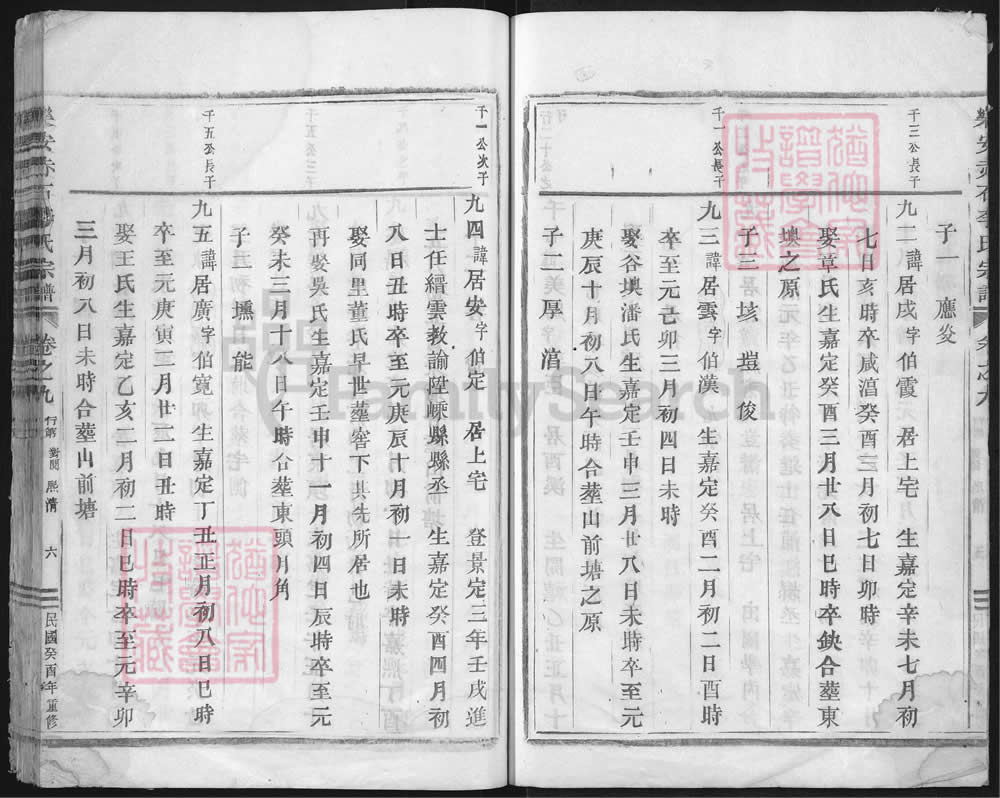 子一 應炎
千三公長子
九二諱居戌字伯霞 居上宅 生嘉定辛未七月初
七日亥時卒咸淳癸酉三月初七日卯時
娶章氏生嘉定癸酉三月廿八日巳時卒缺合塟東
塽之原
子三 垓 塏 俊
千一公長子
九三諱居雲字伯漢 生嘉定癸酉二月初二日酉時
卒至元己卯三月初四日未時
娶谷塽潘氏生嘉定壬申三月廿八日未時卒至元
庚辰十月初八日午時合塟山前塘之原
子二 厚 淯
千一公次子
九四諱居安字伯定 居上宅 登景定三年壬戌進
士任縉雲教諭陞嵊縣縣丞 生嘉定癸酉四月初
八日丑時卒至元庚辰十月初一日未時
娶同里董氏早世塟窖下其先所居也
再娶吳氏生嘉定壬申十一月初四日辰時卒至元
癸未三月十八日午時合塟東頭月角
子二 壎 能
千五公長子
九五諱居廣字伯寬 生嘉定丁丑正月初八日巳時
卒至元庚寅二月廿二日丑時
娶王氏生嘉定乙亥二月初二日巳時卒至元辛卯
三月初八日未時合塟山前塘
卷之九 行第 熙清 六 民國癸酉年重修
FamilySearch